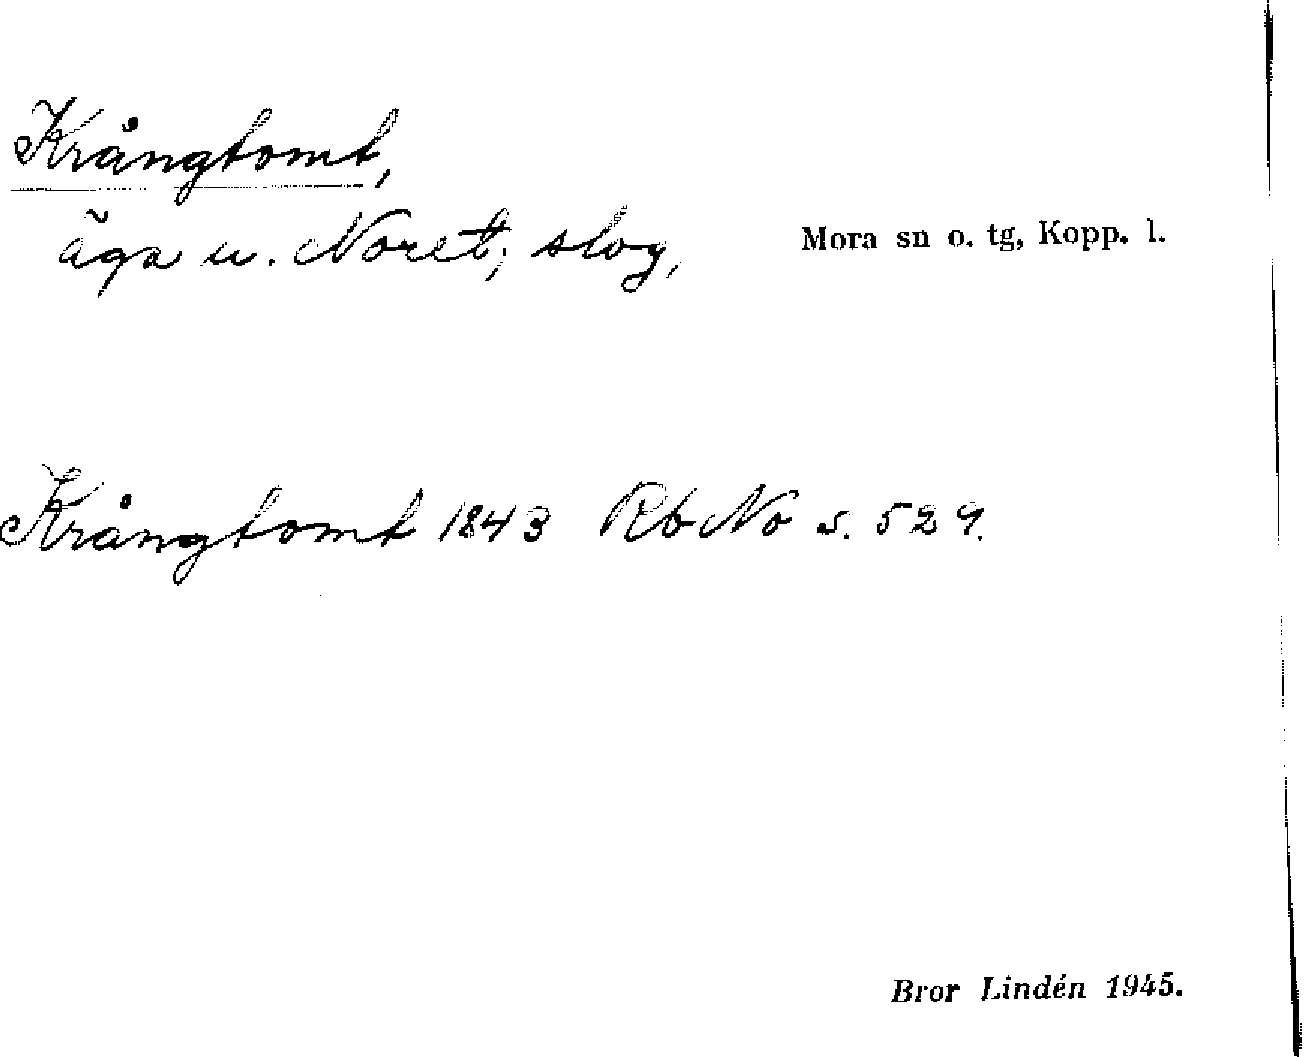 Krångtomt,
äga u. Noret; slog,
Mora sn o. tg, Kopp. l.
Krångtomt 1843 Rb No s. 529.
Bror Lindén 1945.